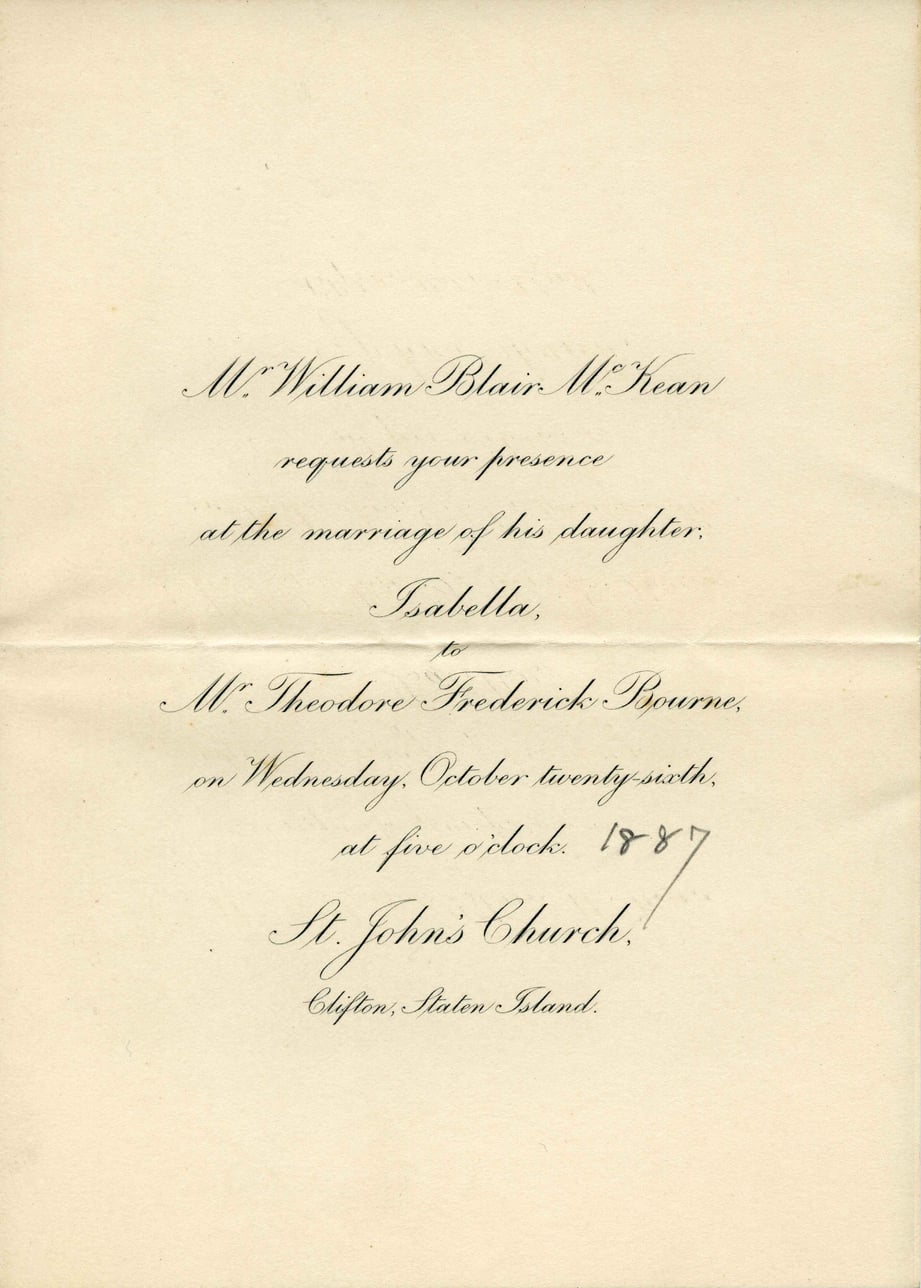 Mr. William Blair McKean
requests your presence
at the marriage of his daughter,
Isabella,
to
Mr. Theodore Frederick Bourne,
on Wednesday, October twenty-sixth,
at five o'clock. 1887
St. John's Church,
Clifton, Staten Island.